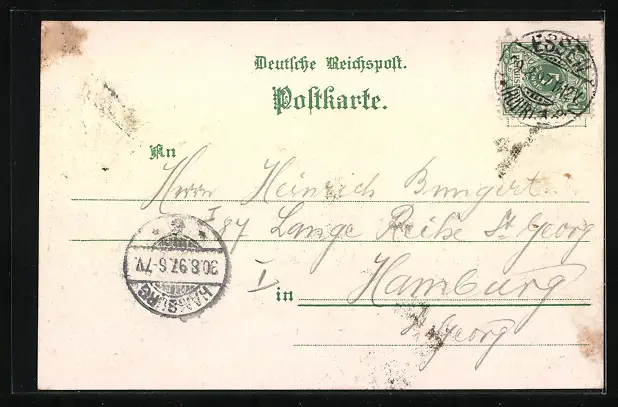 Deutsche Reichspost.
Postkarte.
ESSEN
(RUHR)
An
Herrn Heinrich Bungert
I
87 Lange Reihe St. Georg
V in Hamburg
St Georg
HAMBURG
30.8.97.6-7V.